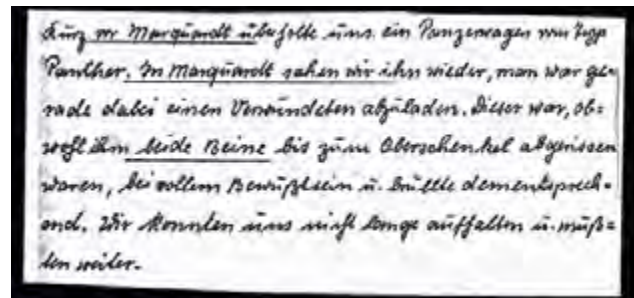 Kurz vor Marquardt überholte uns ein Panzerwagen vom Typ
Panther. In Marquardt sahen wir ihn wieder, man war ge=
rade dabei einen Verwundeten abzuladen. Dieser war, ob=
wohl ihm beide Beine bis zum Oberschenkel abgerissen
waren, bei vollem Bewußtsein u. brüllte dementsprech-
end. Wir konnten uns nicht lange aufhalten u. muß=
ten weiter.